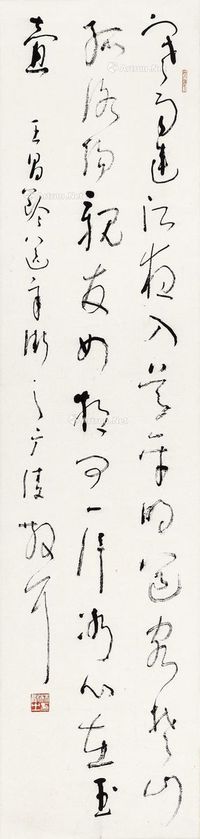 寒雨連江夜入吳平明送客楚山
孤洛陽親友如相問一片冰心在玉
壺 王昌齡送辛漸之广陵 散耳